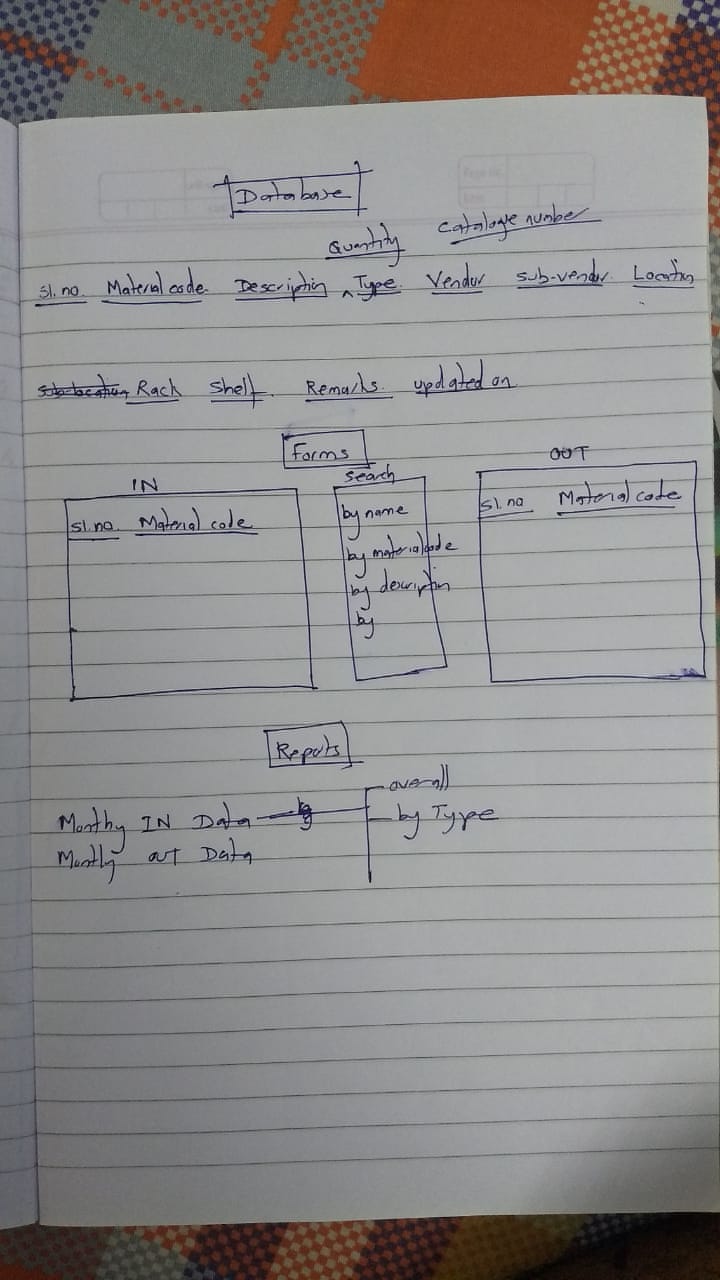 Database
Quantity Catalogue number
Sl. no. Material code. Description ^ Type. Vendor sub-vendor. Location
Sub-location Rack Shelf. Remarks. updated on
Forms
IN
Sl. no. Material code
Search
by name
by materialcode
by description
by
OUT
Sl. no Material code
Reports
Monthy IN Data by
Montly OUT Data
overall
by Type